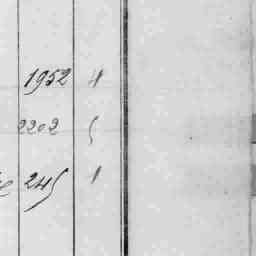 1952 4
2202 5
245 1